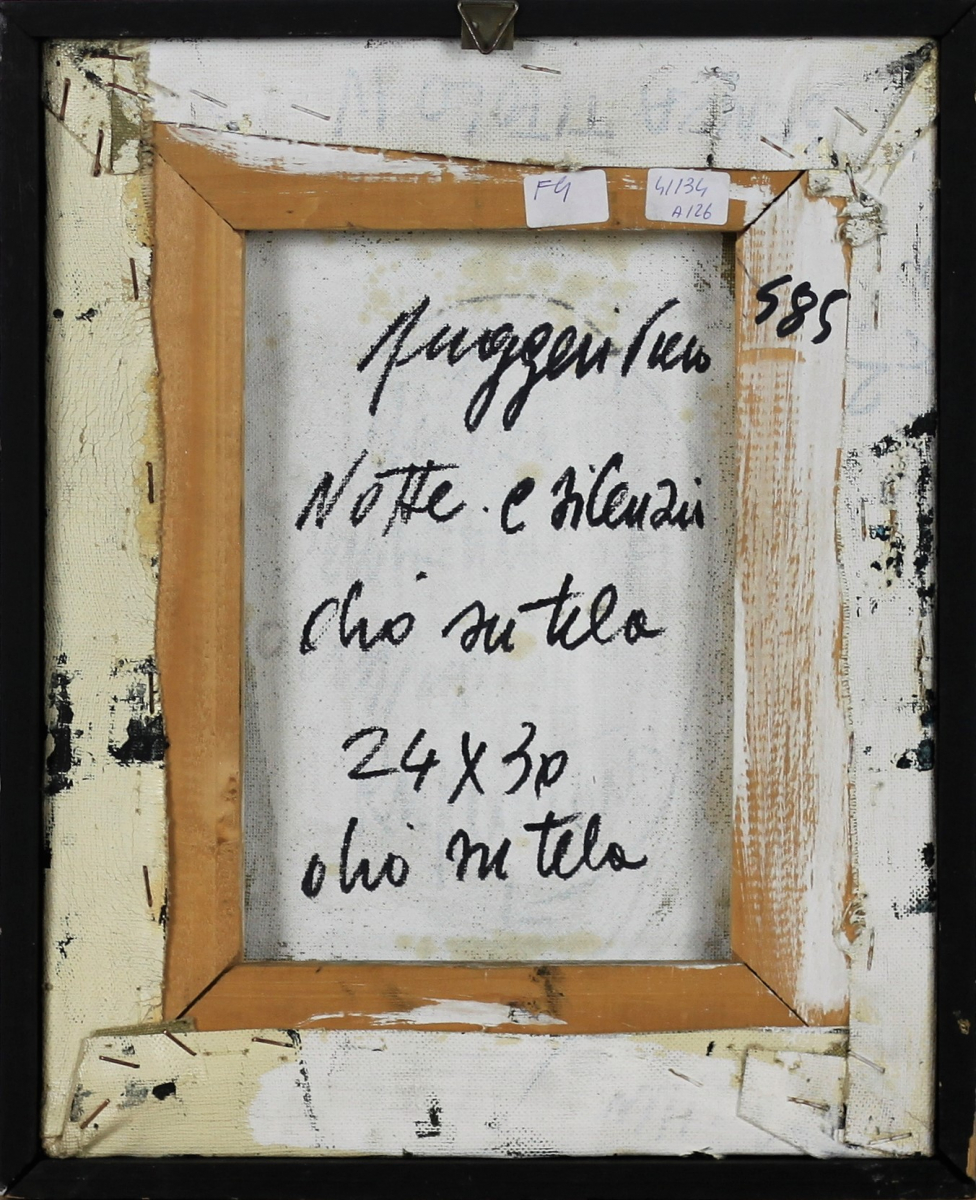 F4
41134
A126
585
Ruggeri Piero
Notte e silenzii
olio su tela
24 x 30
olio su tela